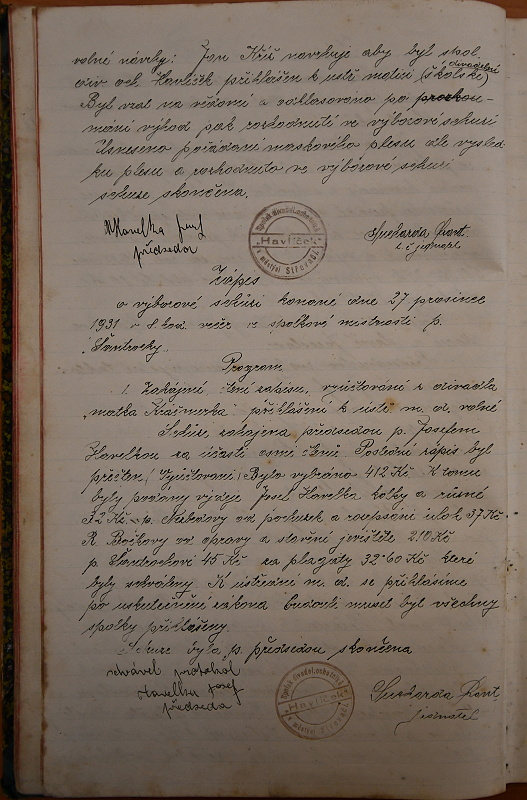 volné návrhy: Jan Kříž navrhuje aby byl spol.
div. och. Havlíček přihlášen k ústř. matici (školské) divadelní
Byl vzat na vědomí a odhlasováno po prozkou-
mání výhod pak rozhodnutí ve výborové schůzi
Usneseno pořádání maskového plesu dle výsled-
ku plesu a rozhodnuto ve výborové schůzi
schůze skončena.
Havelka Josef
předseda
Spolek divadel. ochotníků
"Havlíček"
v městysi
Sucharda
t. č. jednatel
Zápis
o výborové schůzi konané dne 27 prosince
1931 v 8 hod. večer ve spolkové místnosti p.
Šandrocky.
Program
1. Zahájení, čtení zápisu, vyúčtování z divadla
matka Kráčmerka přihlášení k ústř. m. d. volné
Schůze zahájena předsedou p. Josefem
Havelkou za účasti osmi členů. Poslední zápis byl
přečten. Vyúčtování: Bylo vybráno 412 Kč. K tomu
byly podány výdaje Josef Havelka kolky a různé
32 Kč p. od pochůzek a rozepsání úloh 37 Kč
R. od opravy a stavění jeviště 210 Kč
p. Šandrockovi 45 Kč za plagáty 32·60 Kč které
byly schváleny. K ústřední m. d. se přihlásíme
po uskutečnění zákona budouli muset být všechny
spolky přihlášeny.
Schůze byla p. předsedou skončena
schválil protokol
Havelka Josef
předseda
Spolek divadel. ochotníků
"Havlíček"
v městysi
Sucharda
jednatel